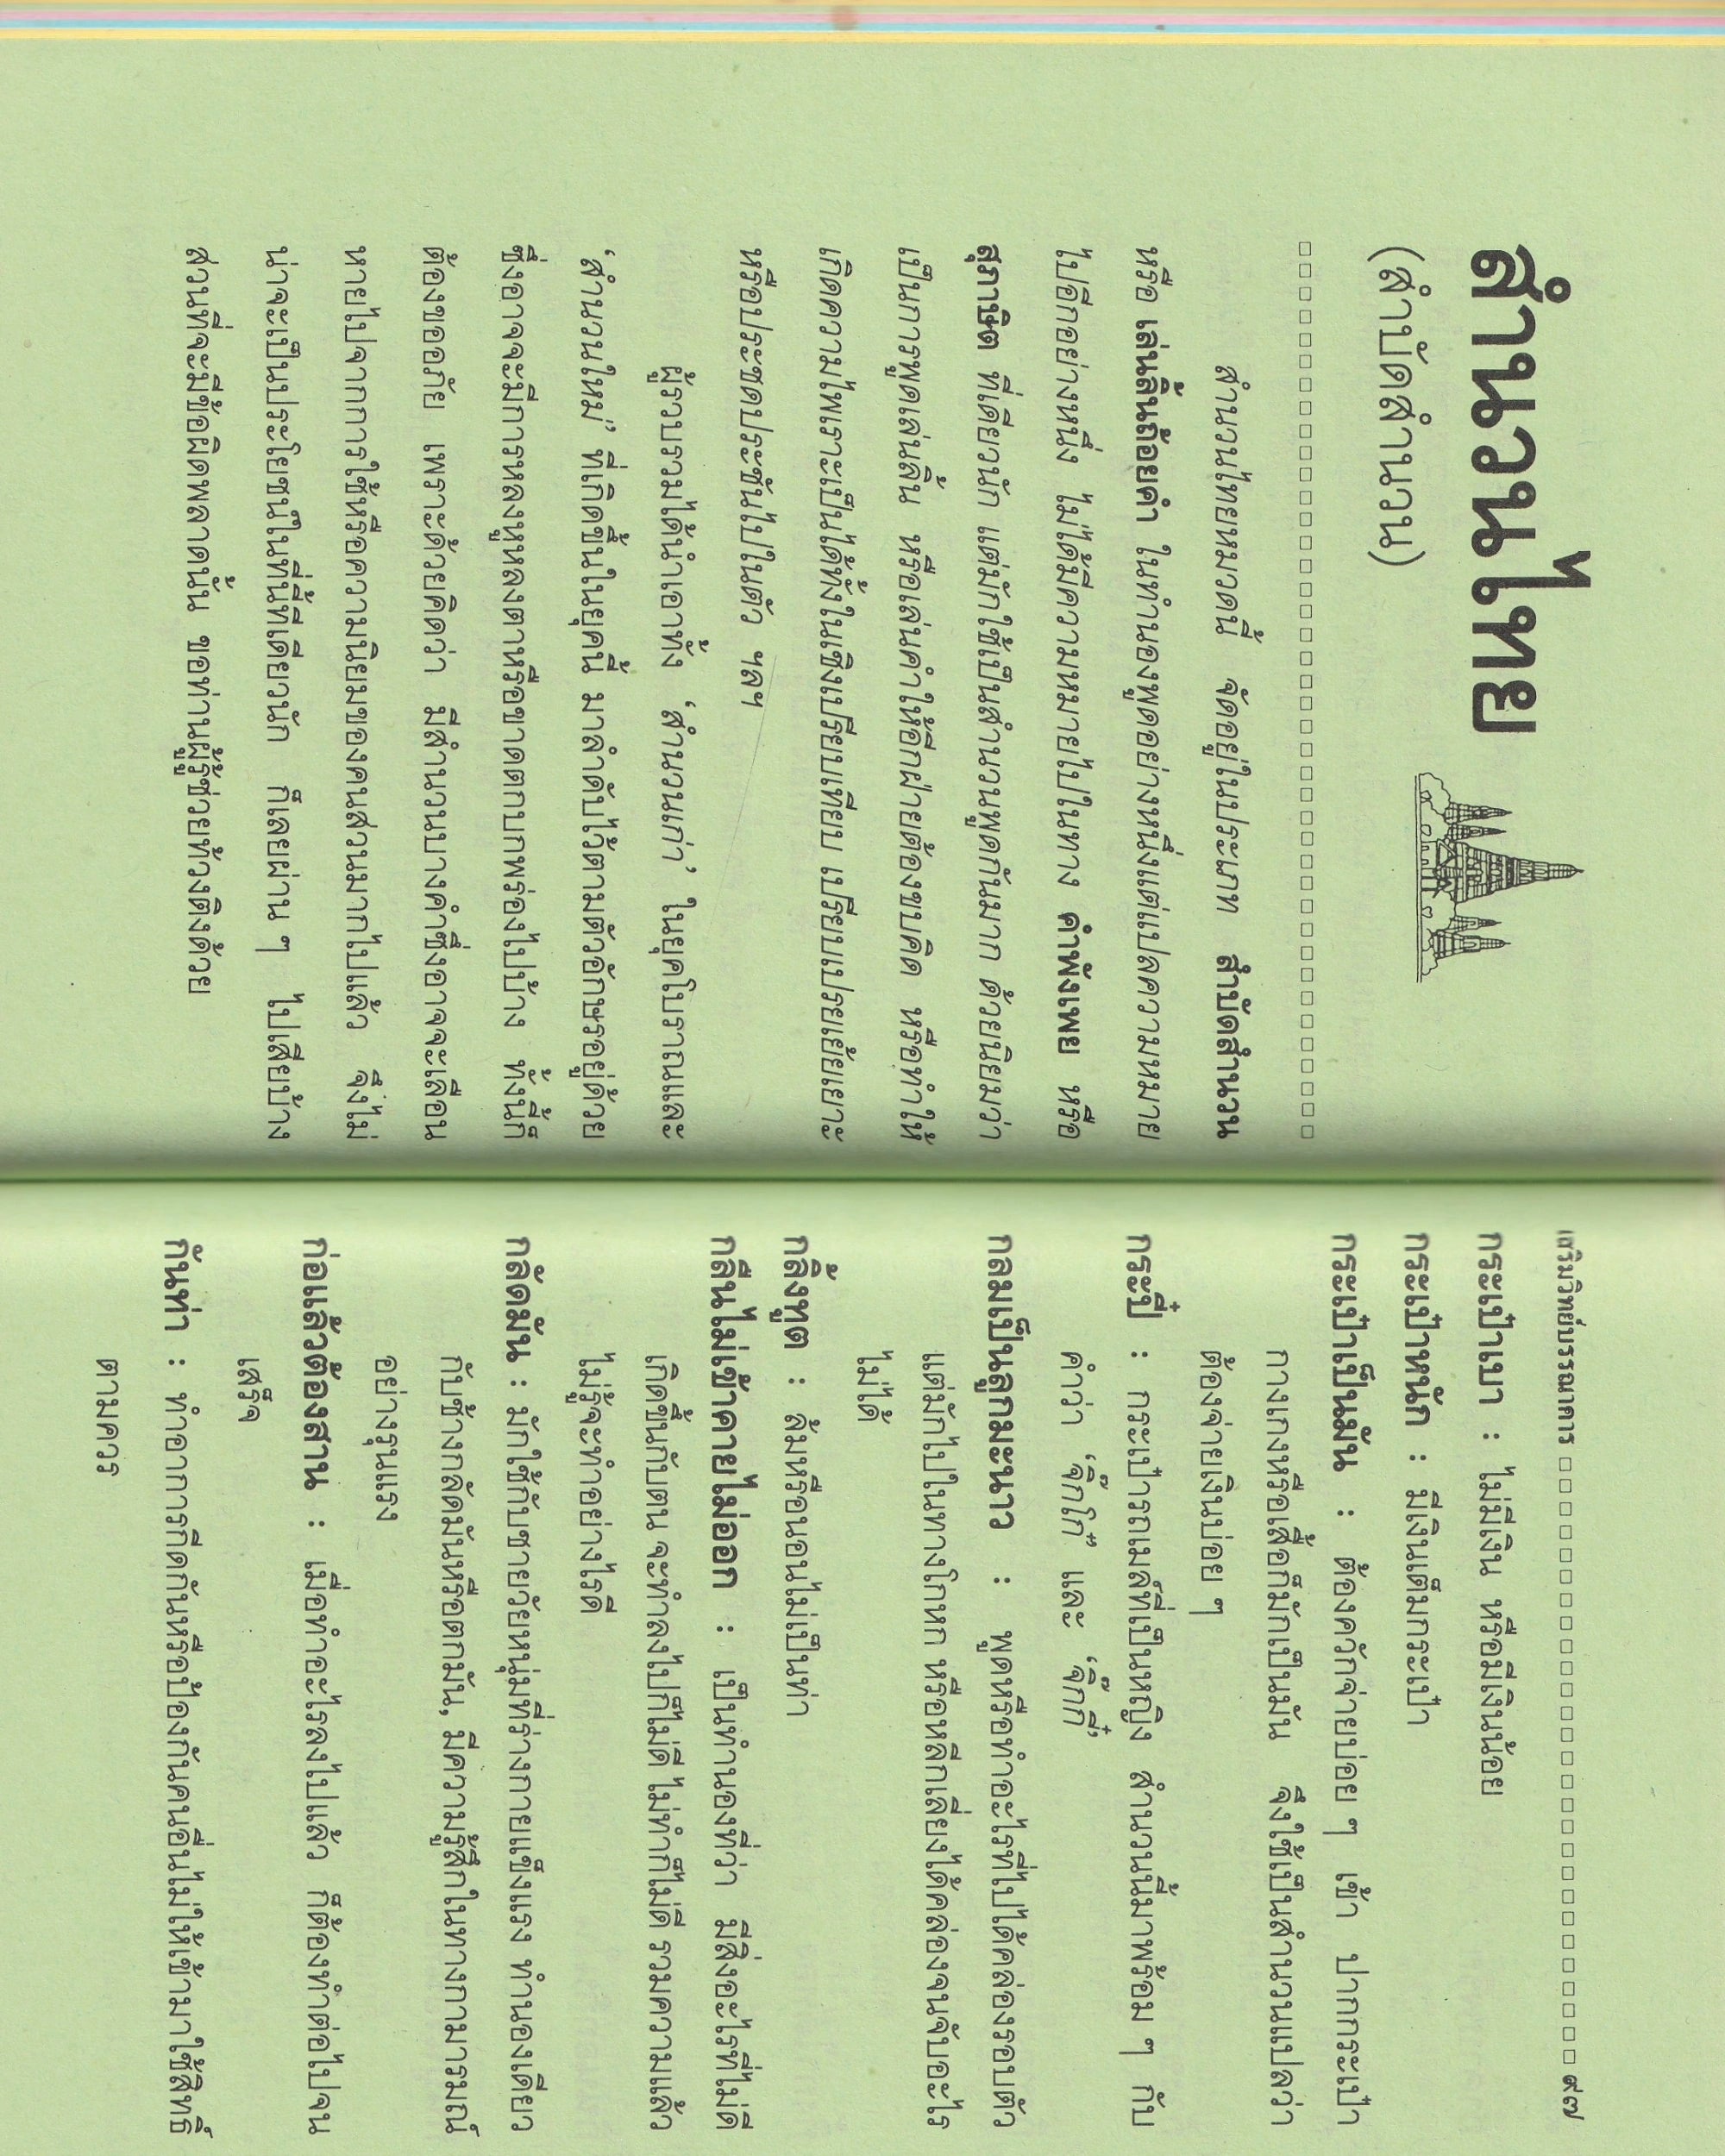 สำนวนไทย
(สำบัดสำนวน)
สำนวนไทยหมวดนี้ จัดอยู่ในประเภท สำบัดสำนวน
หรือ เล่นลิ้นถ้อยคำ ในทำนองพูดอย่างหนึ่งแต่แปลความหมาย
ไปอีกอย่างหนึ่ง ไม่ได้มีความหมายไปในทาง คำพังเพย หรือ
สุภาษิต ทีเดียวนัก แต่มักใช้เป็นสำนวนพูดกันมาก ด้วยนิยมว่า
เป็นการพูดเล่นลิ้น หรือเล่นคำให้อีกฝ่ายต้องขบคิด หรือทำให้
เกิดความไพเราะเป็นได้ทั้งในเชิงเปรียบเทียบ เปรียบเปรยเย้ยเยาะ
หรือประชดประชันไปในตัว ฯลฯ
ผู้รวบรวมได้นำเอาทั้ง ‘สำนวนเก่า’ ในยุคโบราณและ
‘สำนวนใหม่’ ที่เกิดขึ้นในยุคนี้ มาลำดับไว้ตามตัวอักษรอยู่ด้วย
ซึ่งอาจจะมีการหลงหูหลงตาหรือขาดตกบกพร่องไปบ้าง ทั้งนี้ก็
ต้องขออภัย เพราะด้วยคิดว่า มีสำนวนบางคำซึ่งอาจจะเลือน
หายไปจากการใช้หรือความนิยมของคนส่วนมากไปแล้ว จึงไม่
น่าจะเป็นประโยชน์ในที่นี้ทีเดียวนัก ก็เลยผ่าน ๆ ไปเสียบ้าง
ส่วนที่จะมีข้อผิดพลาดนั้น ขอท่านผู้รู้ช่วยท้วงติงด้วย
เสริมวิทย์บรรณาคาร ๙๗
กระเป๋าเบา : ไม่มีเงิน หรือมีเงินน้อย
กระเป๋าหนัก : มีเงินเต็มกระเป๋า
กระเป๋าเป็นมัน : ต้องควักจ่ายบ่อย ๆ เข้า ปากกระเป๋า
กางเกงหรือเสื้อก็มักเป็นมัน จึงใช้เป็นสำนวนแปลว่า
ต้องจ่ายเงินบ่อย ๆ
กระปี๋ : กระเป๋ารถเมล์ที่เป็นหญิง สำนวนนี้มาพร้อม ๆ กับ
คำว่า ‘จิ๊กโก๋’ และ ‘จิ๊กกี๋’
กลมเป็นลูกมะนาว : พูดหรือทำอะไรที่ไปได้คล่องรอบตัว
แต่มักไปในทางโกหก หรือหลีกเลี่ยงได้คล่องจนจับอะไร
ไม่ได้
กลิ้งทูต : ล้มหรือนอนไม่เป็นท่า
กลืนไม่เข้าคายไม่ออก : เป็นทำนองที่ว่า มีสิ่งอะไรที่ไม่ดี
เกิดขึ้นกับตน จะทำลงไปก็ไม่ดี ไม่ทำก็ไม่ดี รวมความแล้ว
ไม่รู้จะทำอย่างไรดี
กลัดมัน : มักใช้กับชายวัยหนุ่มที่ร่างกายแข็งแรง ทำนองเดียว
กับช้างกลัดมันหรือตกมัน, มีความรู้สึกในทางกามารมณ์
อย่างรุนแรง
ก่อแล้วต้องสาน : เมื่อทำอะไรลงไปแล้ว ก็ต้องทำต่อไปจน
เสร็จ
กันท่า : ทำอาการกีดกันหรือป้องกันคนอื่นไม่ให้เข้ามาใช้สิทธิ์
ตามควร